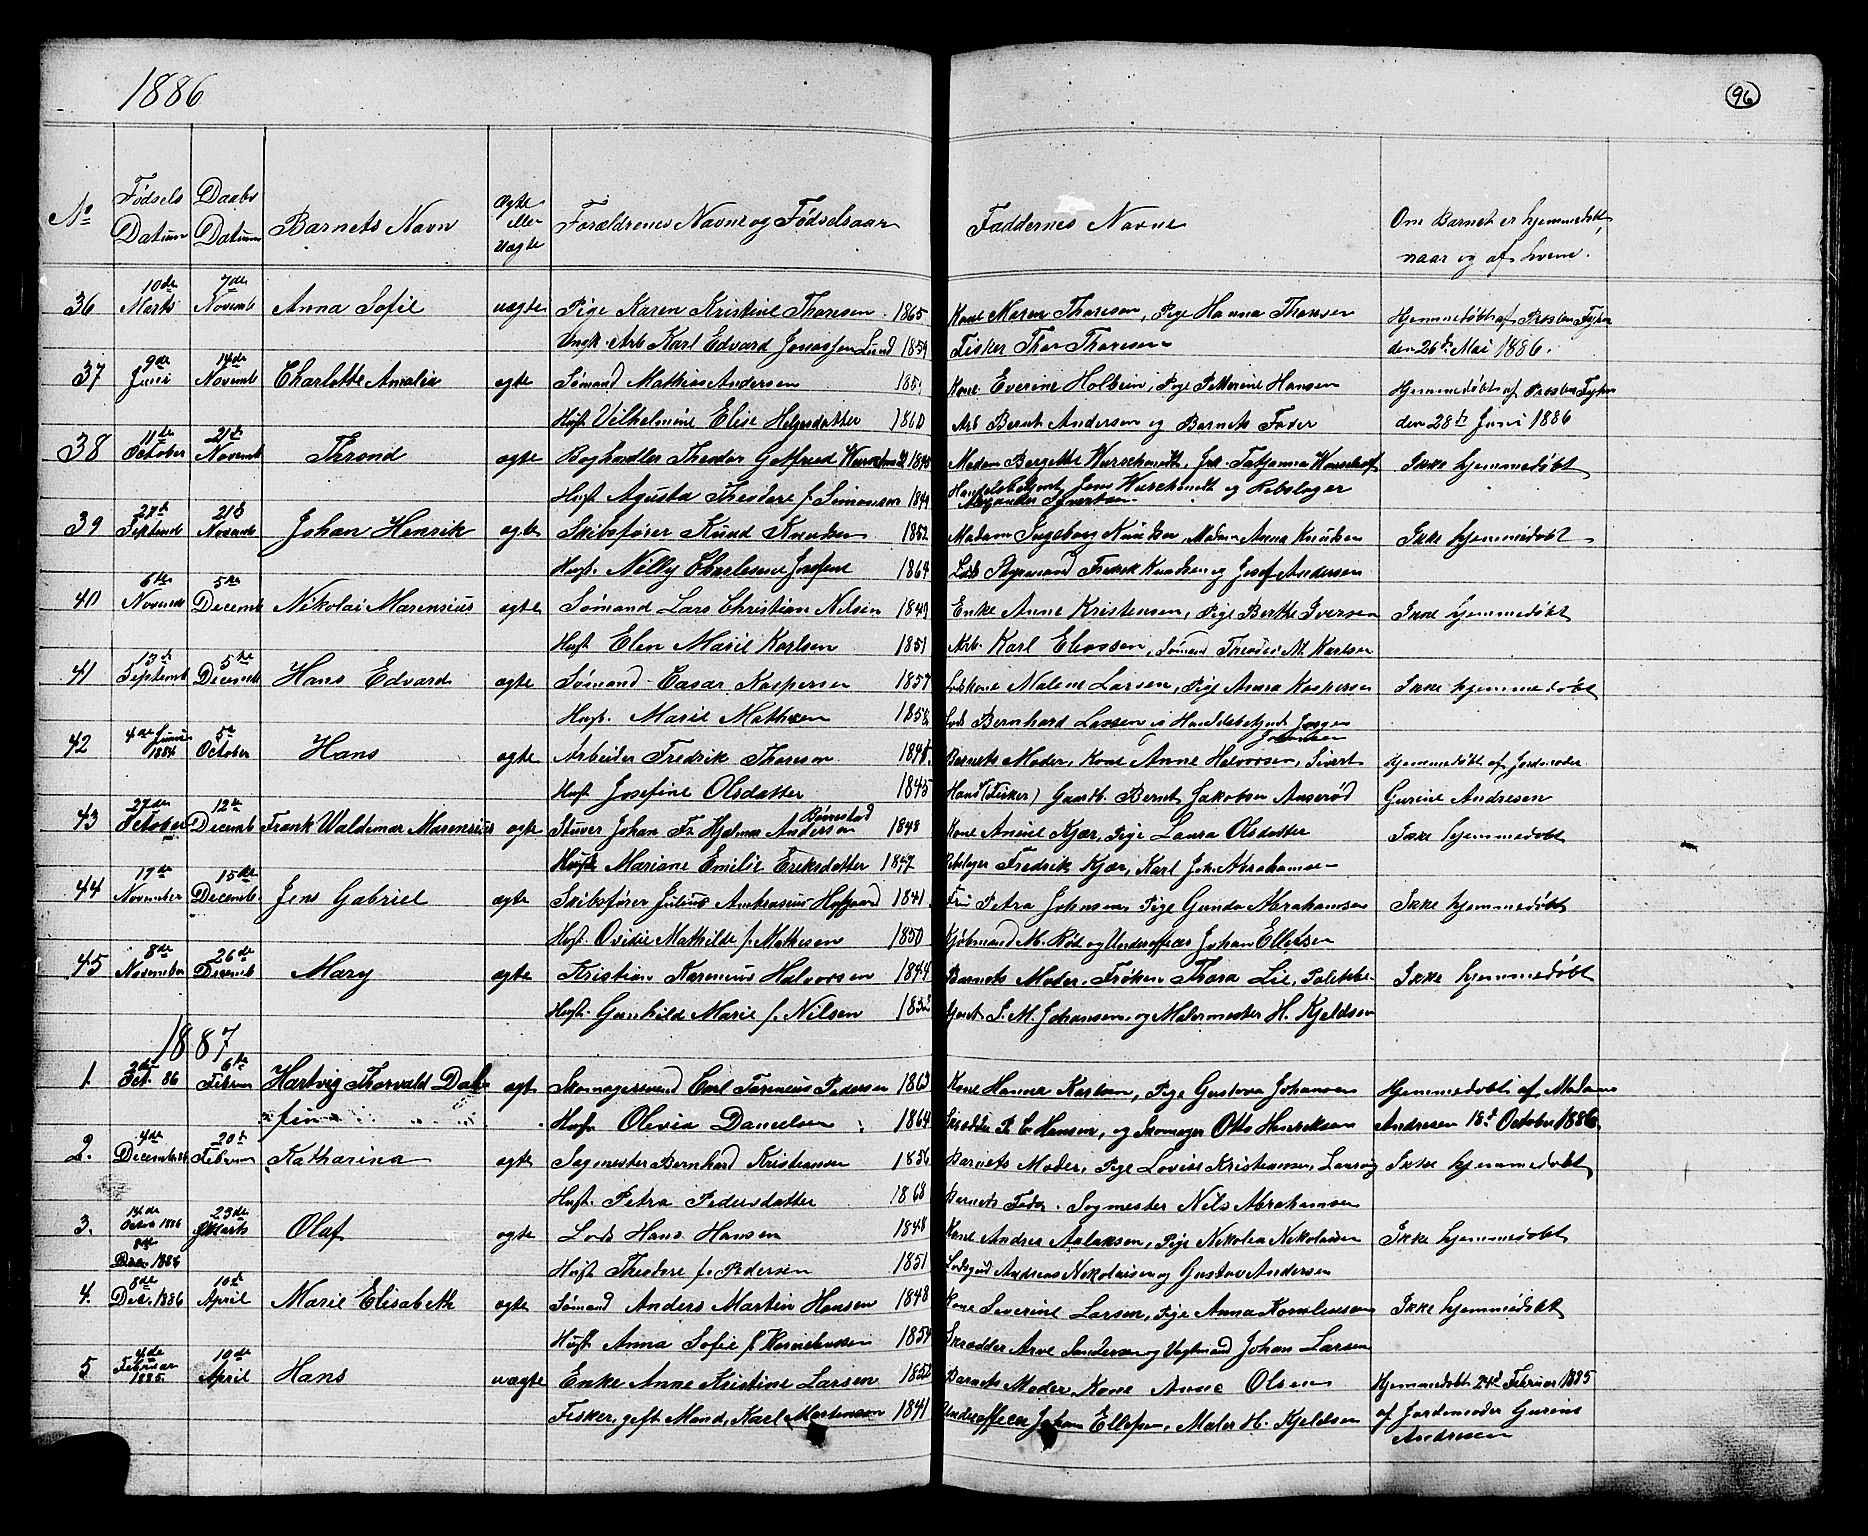 1886
96
No Fødsels Datum Daabs Datum Barnets Navn ægte eller uægte Forældrenes Navne og Fødselsaar Faddernes Navne Om Barnet er hjemmedøbt, naar og af hvem.
36 10de Marts 7de Novemb Anna Sofie uægte Pige Karen Kristine Thoresen 1865 Kone Maren Thoresen, Pige Hanna Thoresen Hjemmedøbt af Presten
Ungk. Arb Karl Edvard Lund 1859 Fisker Thor Thoresen den 26de Mai 1886.
37 9de Juni 14de Novemb Charlotte Amalia ægte Sømand Mathias Andersen Kone Everine Holbein, Pige Petterine Hansen Hjemmedøbt af Presten
Hust Vilhelmine Elise Helgesdatter 1860 Arb Bernt Andersen og Barnets Fader den 28de Juni 1886
38 11te October 21de Novemb Thrond ægte Boghandler Theodor Gotfried Madam Bergette Wurschmidt, Ikke hjemmedøbt
Hust Agusta Theodore f. Simonsen 1849 Handelsbetjent Jens Wurschmidt og Rebslager
Alexander Sivertsen
39 Septemb 21de Novemb Johan Henrik ægte Skibsfører Knud Knudsen 1852 Madam Ingeborg Knudsen, Madam Anna Knudsen Ikke hjemmedøbt
Hust. Nelly Charlesine Josefine 1864 Styrmand Fredrik Knudsen og Josef Andersen
40 6te Novemb 5te Decemb Nikolai Marensius ægte Sømand Lars Christian Nilsen 1849 Enke Anne Kristensen, Pige Berthe Iversen Ikke hjemmedøbt
Hust Elen Marie Karlsen 1851 Arb. Karl Eliassen, Sømand Theodor M. Karlsen
41 13de Septemb 5te Decemb Hans Edvard ægte Sømand Casar Kaspersen 1857 Lodskone Malene Larsen, Pige Anna Kaspersen Ikke hjemmedøbt
Hust. Marie Mathisen 1858 Lods Bernhard Larsen og Handelsbetjent Jørgen
42 4de Juni 1884 5te October Hans ægte Arbeider Fredrik Thoresen 1848 Barnets Moder, Kone Anne Halvorsen, Sivert Hjemmedøbt af Jordmoder
Hust Josefine Olsdatter 1845 Hans (Fisker) Gaardb. Bernt Jakobsen Aaserød Gurine Andresen
43 27de October 12te Decemb Frank Waldemar Marensius ægte Stuver Johan Fr. Hjalmar Andersen Rønestad 1848 Kone Anine Kjær, Pige Laura Olsdatter Ikke hjemmedøbt
Hust Mariane Emilie Eriksdatter 1847 Rebslager Fredrik Kjær, Karl Joh. Abrahamsen
44 17de November 15de Decemb Jens Gabriel ægte Skibsfører Julius Ambrosius Hofgaard 1841 Fru Petra Johnsen, Pige Gunda Abrahamsen Ikke hjemmedøbt
Hust. Ovidie Mathilde f. Mathisen 1850 Kjøbmand M. Rød og Underofficer Johan Ellefsen
45 8de November 26de Decemb Mary ægte Kristian Karenius Halvorsen 1844 Barnets Moder, Frøken Thora Lie, Politibe-
Hust. Gunhilde Marie f. Nilsen 1852 tjent J. M. Johansen, og Malermester H. Kjeldsen Ikke hjemmedøbt
1887
1. 2de Oct. 86 6te Februar Hartvig Thorvald Dal- ægte Skomagersvend Carl Torenius Pedersen 1863 Kone Hanna Karlsen, Pige Gustava Johansen Hjemmedøbt af Madam
fin Hust Olevia Danielsen 1864 Skrædder P. C. Hansen, og Skomager Otto Henriksen Andresen 18de October 1886.
2. 4de Decemb 86 20de Februar Katharina ægte Sagmester Bernhard Kristiansen 1856 Barnets Moder, Pige Lovise Kristiansen, Laurvig Ikke hjemmedøbt
Hust. Petra Pedersdatter 1863 Barnets Fader. Sagmester Nils Abrahamsen
3. 14de Octob 1886 23de Marts Olaf ægte Lods Hans Hansen 1848 Kone Andrea Aslaksen, Pige Nikolea Nikolaisen Ikke hjemmedøbt
8de Dec. 1886 Hust Theodore f. Pedersen 1851 Lodsgut Andreas Nikolaisen og Gustav Andersen
4. 8de Dec. 1886 10de April Marie Elisabeth ægte Sømand Anders Martin Hansen 1848 Kone Severine Larsen, Pige Anna Korneliussen Ikke hjemmedøbt
Hust Anna Sofie f. Korneliussen 1854 Skrædder Arve Sandersen og Vagtmand Johan Larsen
5 4de Februar 1885 10de April Hans uægte Enke Anne Kristine Larsen 1852 Barnets Moder, Kone Anne Olsen Hjemmedøbt 24de Februar 1885
Fisker, gift Mand, Karl Mortensen 1841 Underofficer Johan Ellefsen, Maler H. Kjeldsen af Jordmoder Gurine
Andresen